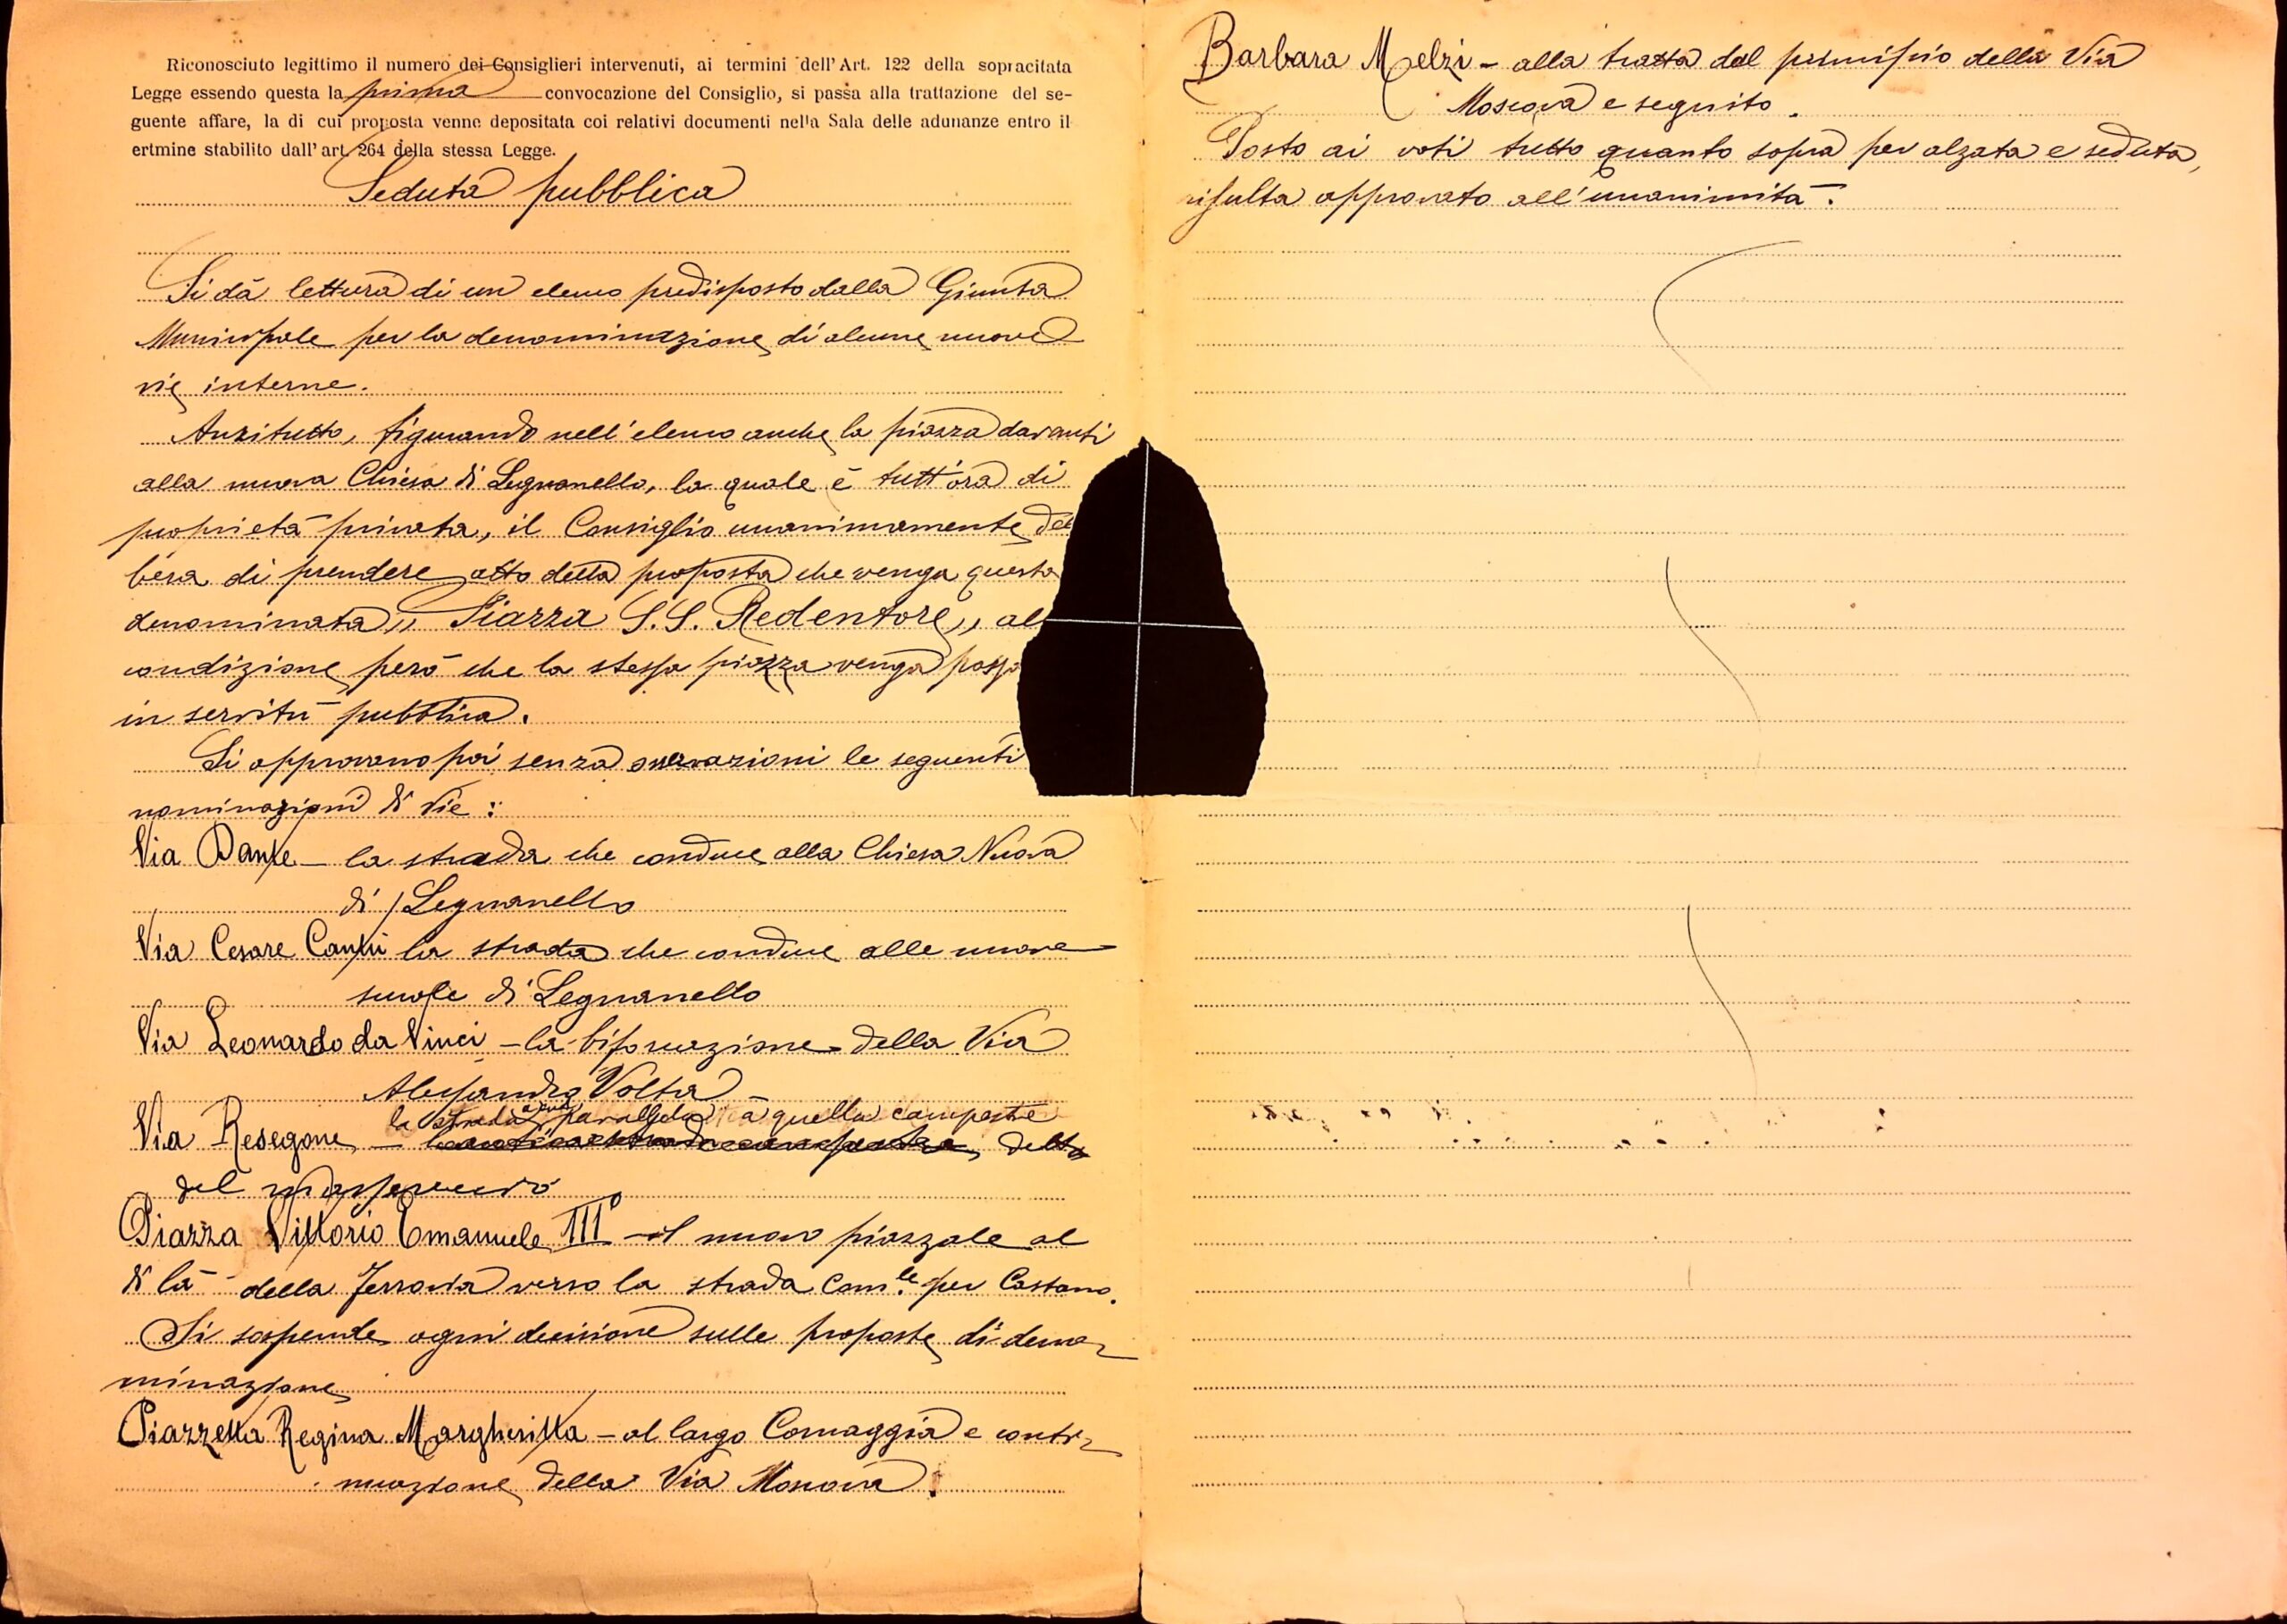 Riconosciuto legittimo il numero dei Consiglieri intervenuti, ai termini dell'Art. 122 della sopracitata
Legge essendo questa la prima convocazione del Consiglio, si passa alla trattazione del se-
guente affare, la di cui proposta venne depositata coi relativi documenti nella Sala delle adunanze entro il
ertmine stabilito dall'art. 264 della stessa Legge.
Seduta pubblica
Si dà lettura di un elenco predisposto dalla Giunta
Municipale per la denominazione di alcune nuove
vie interne.
Anzitutto, figurando nell'elenco anche la piazza davanti
alla nuova Chiesa di Legnanello, la quale è tutt'ora di
proprietà privata, il Consiglio unanimamente del
bera di prendere atto della proposta che venga questa
denominata „ Piazza S.S. Redentore „ al
condizione però che la stessa piazza venga possa
in servitù pubblica.
Si approvano poi senza osservazioni le seguenti
nominazioni di Vie :
Via Dante - la strada che conduce alla Chiesa Nuova
di Legnanello
Via Cesare Cantù la strada che conduce alle nuove
scuole di Legnanello
Via Leonardo da Vinci - la biforcazione della Via
Alessandro Volta -
la strada parallela a quella campestre
Via Resegone - detta
del
Piazza Vittorio Emanuele III° - il nuovo piazzale al
di là della Ferrovia verso la strada Com.le per Castano.
Si sospende ogni decisione sulle proposte di deno-
minazione
Piazzetta Regina Margheritta - al largo Cornaggia e conti-
nuazione della Via Moscova.
Barbara Melzi - alla tratta dal principio della Via
Moscova e seguito.
Posto ai voti tutto quanto sopra per alzata e seduta,
risulta approvato all'unanimità.